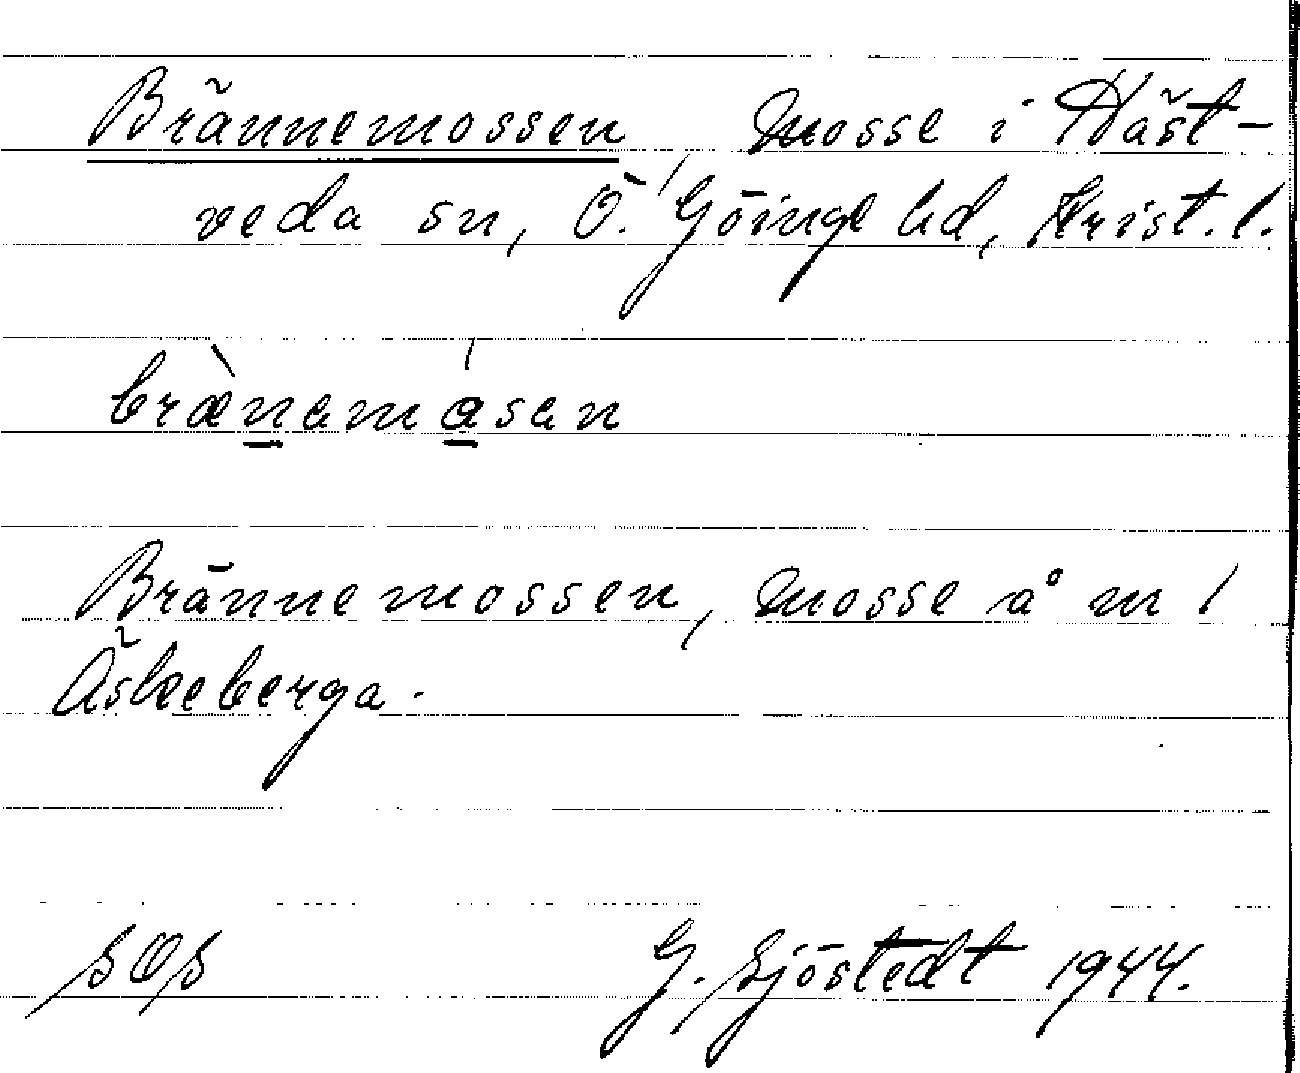 Brännemossen, mosse i Häst-
veda sn, Ö. Göinge hd, Krist. l.
brænemåsen
Brännemossen, mosse å m /
Äskeberga.
SOS G. Sjöstedt 1944.